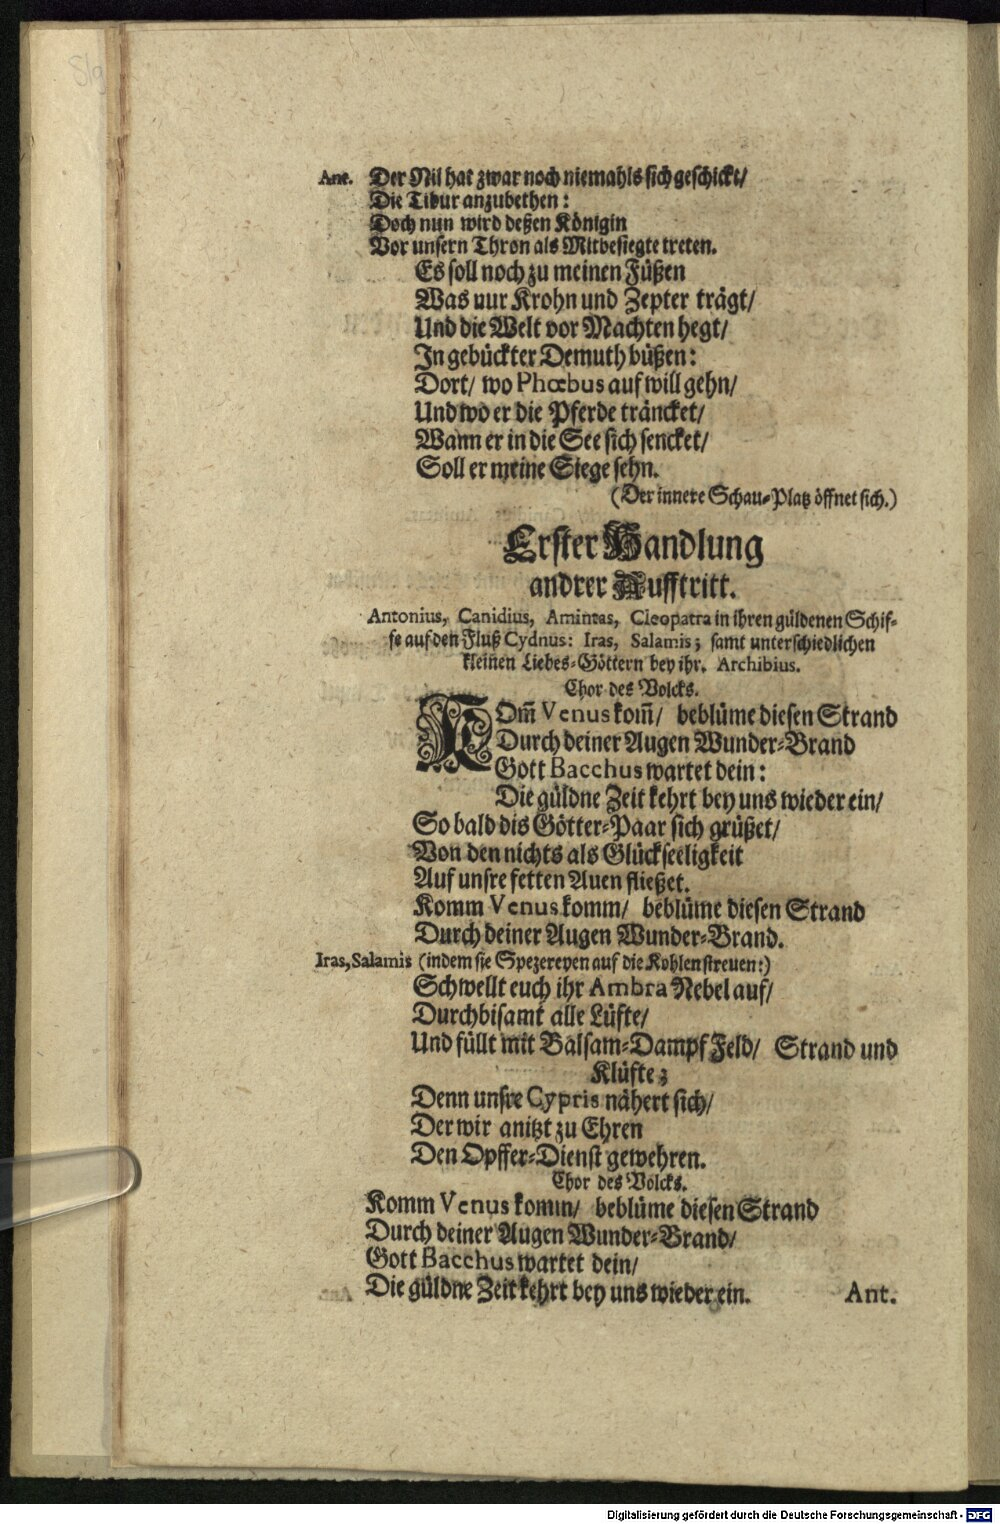 Slg
Ant. Der Nil hat zwar noch niemahls sich geschickt/
Die Tibur anzubethen:
Doch nun wird deßen Königin
Vor unsern Thron als Mitbesiegte treten.
Es soll noch zu meinen Füßen
Was nur Krohn und Zepter trägt/
Und die Welt vor Machten hegt/
In gebückter Demuth büßen:
Dort/ wo Phœbus auf will gehn/
Und wo er die Pferde träncket/
Wann er in die See sich sencket/
Soll er meine Siege sehn.
(Der innere Schau-Platz öffnet sich.)
Erster Handlung
andrer Aufftritt.
Antonius, Canidius, Amintas, Cleopatra in ihren güldenen Schif-
fe auf den Fluß Cydnus: Iras, Salamis; samt unterschiedlichen
kleinen Liebes-Göttern bey ihr. Archibius.
Chor des Volcks.
KOm̃ Venus kom̃/ beblüme diesen Strand
Durch deiner Augen Wunder-Brand
Gott Bacchus wartet dein:
Die güldne Zeit kehrt bey uns wieder ein/
So bald dis Götter-Paar sich grüßet/
Von den nichts als Glückseeligkeit
Auf unsre fetten Auen fließet.
Komm Venus komm/ beblüme diesen Strand
Durch deiner Augen Wunder-Brand.
Iras, Salamis (indem sie Spezereyen auf die Kohlen streuen:)
Schwellt euch ihr Ambra Nebel auf/
Durchbisamt alle Lüfte/
Und füllt mit Balsam-Dampf Feld/ Strand und
Klüfte;
Denn unsre Cypris nähert sich/
Der wir anitzt zu Ehren
Den Opffer-Dienst gewehren.
Chor des Volcks.
Komm Venus komm/ beblüme diesen Strand
Durch deiner Augen Wunder-Brand/
Gott Bacchus wartet dein/
Die güldne Zeit kehrt bey uns wieder ein.
Ant.
Digitalisierung gefördert durch die Deutsche Forschungsgemeinschaft - DFG